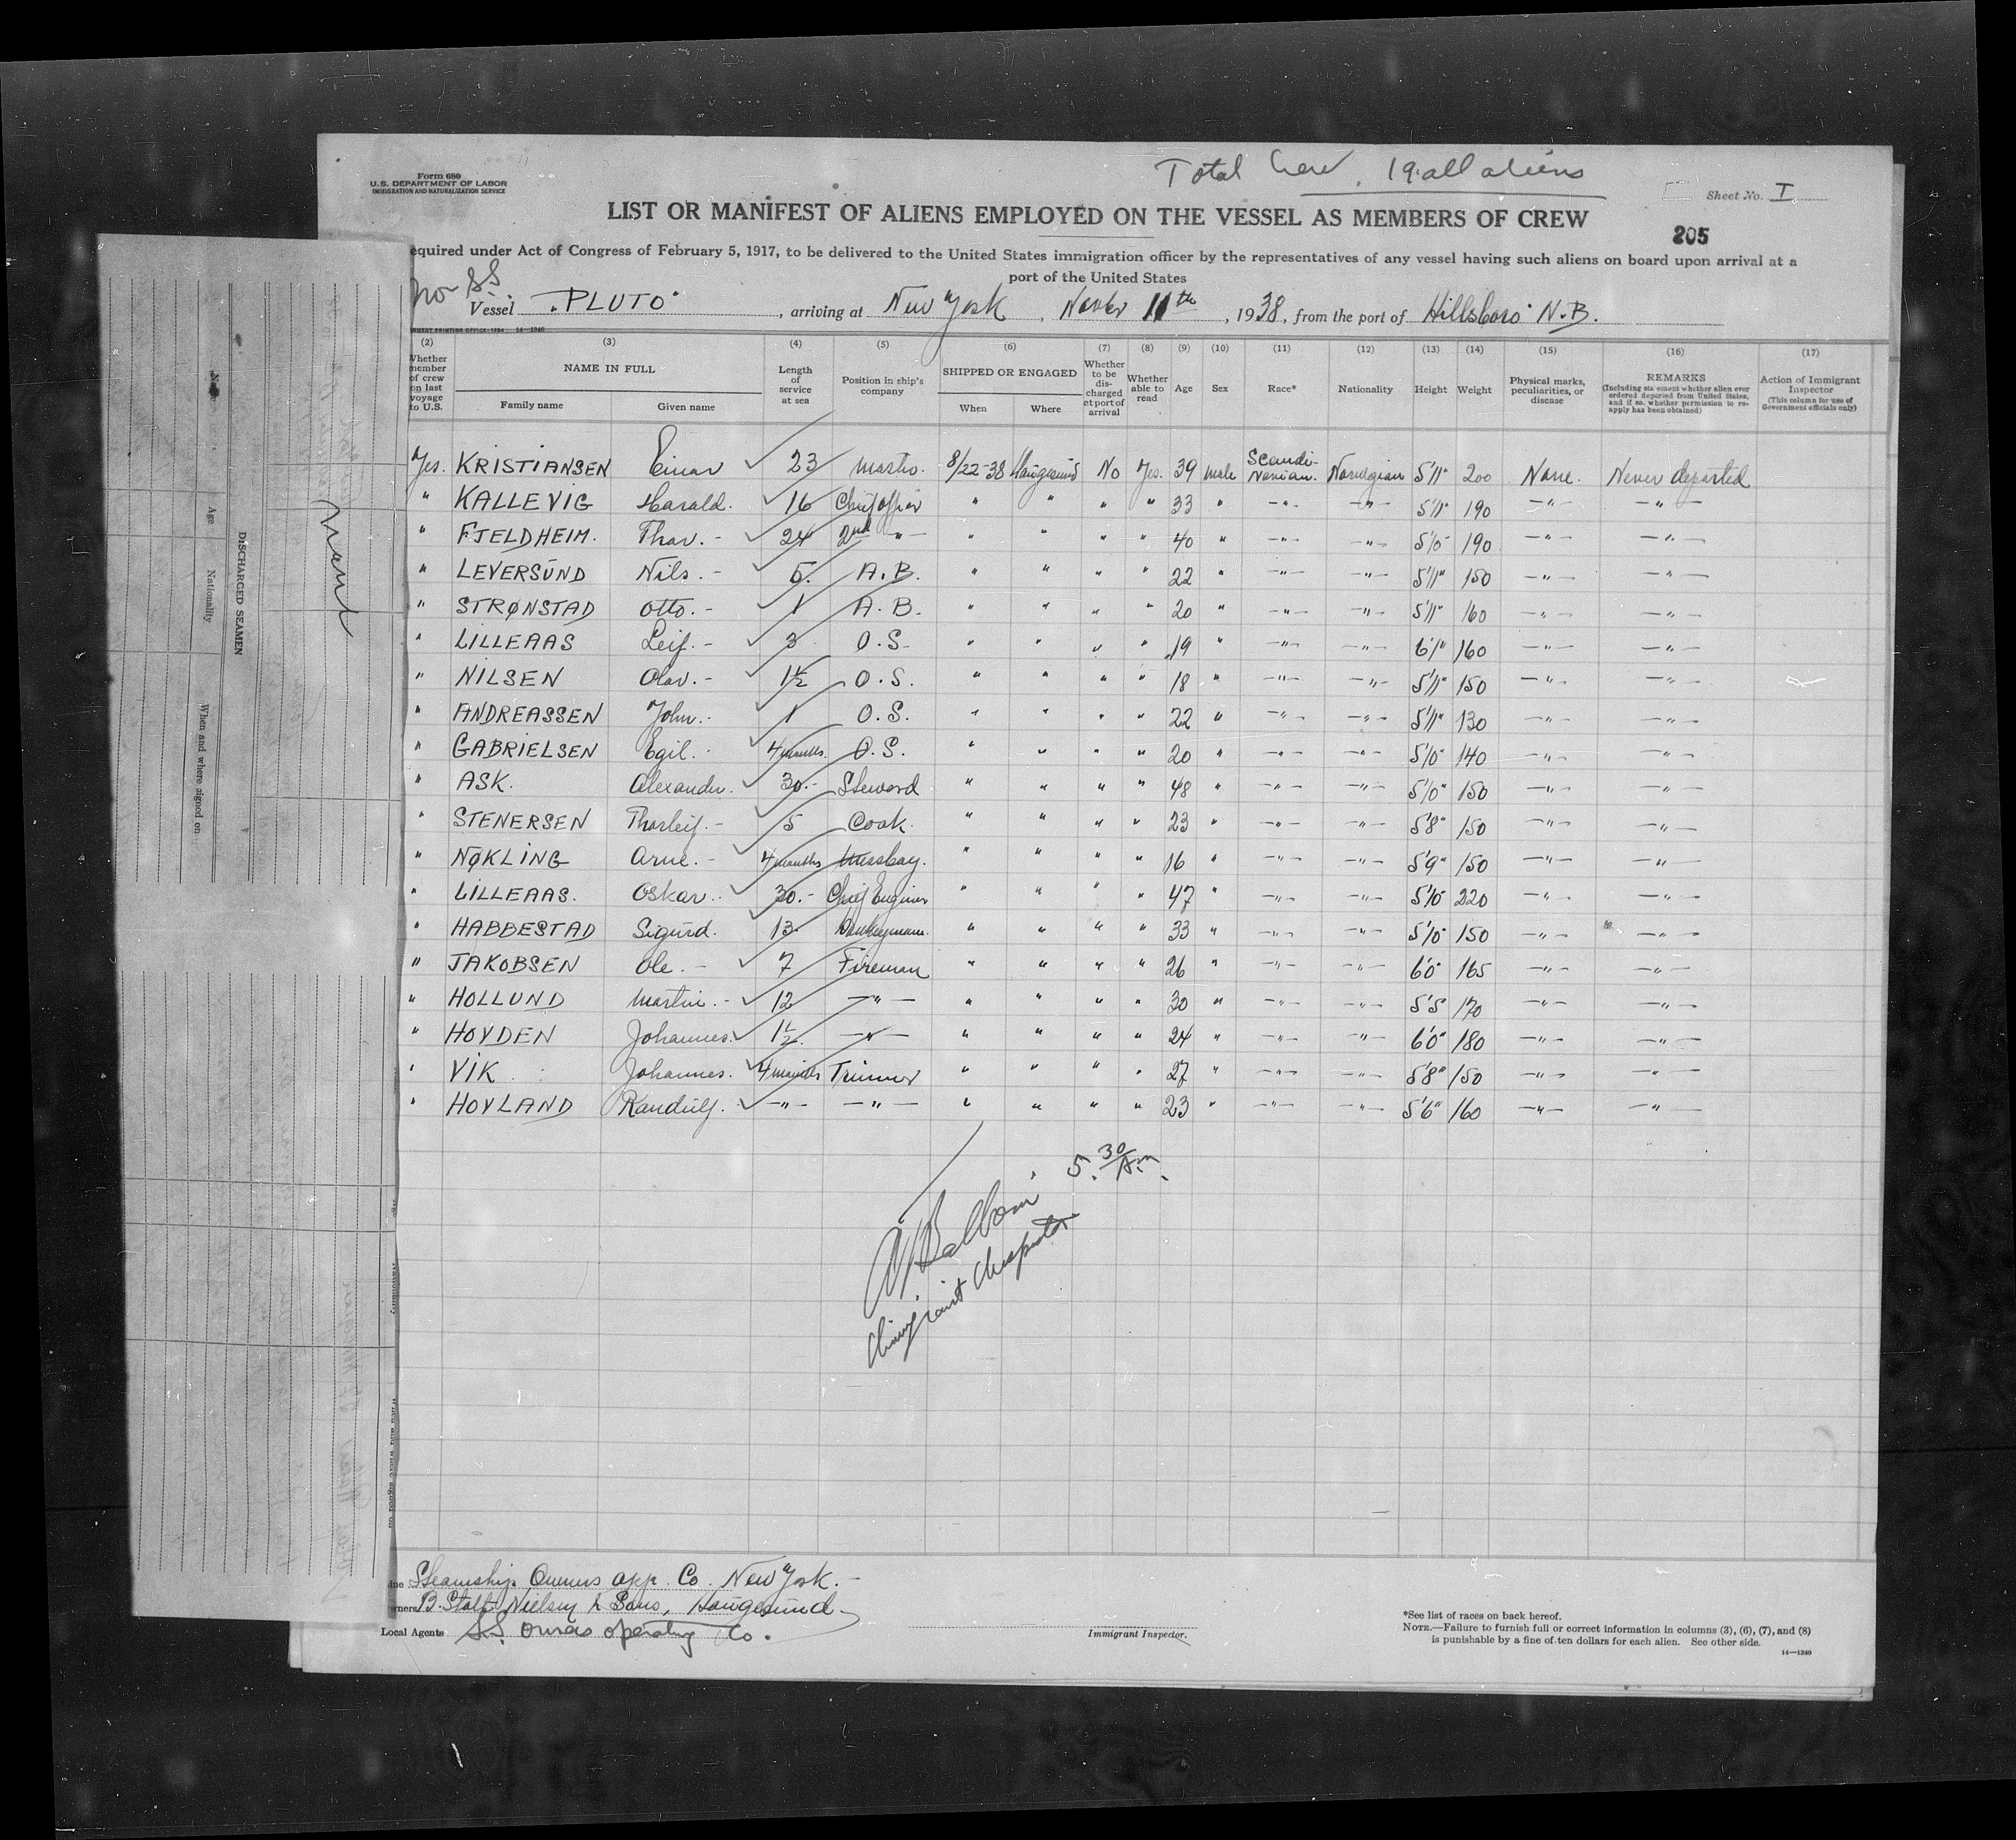 Total Crew. 19. all aliens
Form 680
U.S. DEPARTMENT OF LABOR
IMMIGRATION AND NATURALIZATION SERVICE
Sheet No. I
LIST OR MANIFEST OF ALIENS EMPLOYED ON THE VESSEL AS MEMBERS OF CREW
205
equired under Act of Congress of February 5, 1917, to be delivered to the United States immigration officer by the representatives of any vessel having such aliens on board upon arrival at a
port of the United States
Nor SS
Vessel "PLUTO" , arriving at New York , Novbr 11th , 1938, from the port of Hillsboro N.B.
(2) (3) (4) (5) (6) (7) (8) (9) (10) (11) (12) (13) (14) (15) (16) (17)
Whether member of crew on last voyage to U.S. NAME IN FULL Family name Given name Length of service at sea Position in ship's company SHIPPED OR ENGAGED When Where Whether to be discharged at port of arrival Whether able to read Age Sex Race* Nationality Height Weight Physical marks, peculiarities, or disease REMARKS (Including statement whether alien ever ordered deported from United States, and if so, whether permission to reapply has been obtained) Action of Immigrant Inspector (This column for use of Government officials only)
Yes. KRISTIANSEN Einar 23 Master. 8/22-38 Haugesund No Yes. 39 male Scandinavian. Norwegian 5'11" 200 None. Never departed
" KALLEVIG Harald. 16 Chief officer " " " " 33 " -"- -"- 5'11" 190 -"- -"-
" FJELDHEIM. Thor. - 24 2nd -"- " " " " 40 " -"- -"- 5'10" 190 -"- -"-
" LEVERSUND Nils. - 5. A.B. " " " " 22 " -"- -"- 5'11" 150 -"- -"-
" STRØNSTAD Otto. - 1 A.B. " " " " 20 " -"- -"- 5'11" 160 -"- -"-
" LILLEAAS Leif. - 3 O.S. " " " " 19 " -"- -"- 6'1" 160 -"- -"-
" NILSEN Olav. - 1½ O.S. " " " " 18 " -"- -"- 5'11" 150 -"- -"-
" ANDREASSEN John. - 1 O.S. " " " " 22 " -"- -"- 5'11" 130 -"- -"-
" GABRIELSEN Egil. - 4 months. O.S. " " " " 20 " -"- -"- 5'10" 140 -"- -"-
" ASK. Alexander. 30.- Steward " " " " 48 " -"- -"- 5'10" 150 -"- -"-
" STENERSEN Thorleif. - 5 Cook. " " " " 23 " -"- -"- 5'8" 150 -"- -"-
" NØKLING Arne. - 4 months Messboy. " " " " 16 " -"- -"- 5'9" 150 -"- -"-
" LILLEAAS. Oskar. 30.- Chief Engineer " " " " 47 " -"- -"- 5'10" 220 -"- -"-
" HABBESTAD Sigurd. 13 Donkeyman. " " " " 33 " -"- -"- 5'10" 150 -"- -"-
" JAKOBSEN Ole. - 7 Fireman " " " " 26 " -"- -"- 6'0" 165 -"- -"-
" HOLLUND Martin. - 12 -"- " " " " 30 " -"- -"- 5'5 170 -"- -"-
" HOYDEN Johannes. 1½. -"- " " " " 24 " -"- -"- 6'0" 180 -"- -"-
" VIK Johannes. 4 months Trimmer " " " " 27 " -"- -"- 5'8" 150 -"- -"-
" HOVLAND Randulf. -"- -"- " " " " 23 " -"- -"- 5'6" 160 -"- -"-
5.30 A.m.
Immigrant Inspector
Steamship Owners opp. Co. New York. -
B. Stolt Nielsen & Sons, Haugesund
Local Agents SS. Owners operating Co.
Immigrant Inspector.
*See list of races on back hereof.
NOTE.—Failure to furnish full or correct information in columns (3), (6), (7), and (8)
is punishable by a fine of ten dollars for each alien. See other side.
14—1240
DISCHARGED SEAMEN
Age
Nationality
When and where signed on